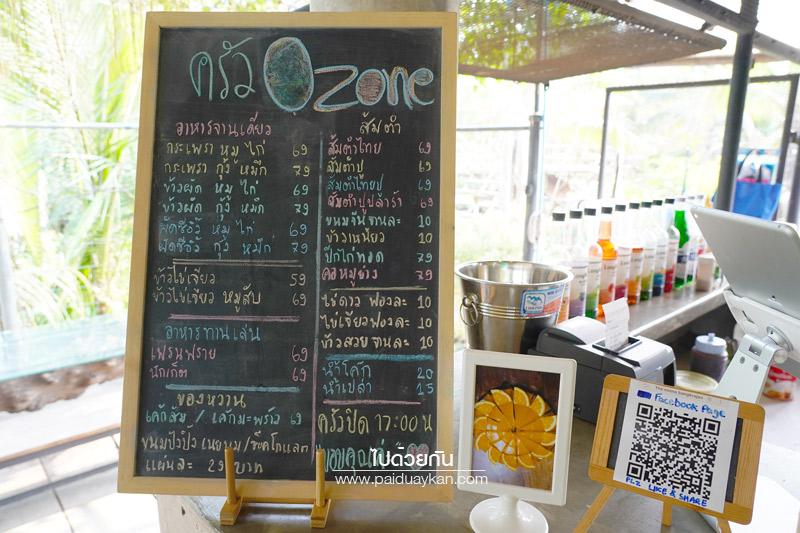 ครัว Ozone
อาหารจานเดียว
กระเพรา หมู ไก่ 69
กระเพรา กุ้ง หมึก 79
ข้าวผัด หมู ไก่ 69
ข้าวผัด กุ้ง หมึก 79
ผัดซีอิ๊ว หมู ไก่ 69
ผัดซีอิ๊ว กุ้ง หมึก 79
ข้าวไข่เจียว 59
ข้าวไข่เจียว หมูสับ 69
อาหารทานเล่น
เฟรนฟราย 69
นักเก็ต 69
ของหวาน
เค้กส้ม / เค้กมะพร้าว 69
ขนมปังปิ้ง เนยนม/ช็อคโกแลต
แผ่นละ 29 บาท
ส้มตำ
ส้มตำไทย 69
ส้มตำปู 69
ส้มตำไทยปู 69
ส้มตำปูปลาร้า 69
ขนมจีนจานละ 10
ข้าวเหนียว 10
ปีกไก่ทอด 79
คอหมูย่าง 79
ไข่ดาว ฟองละ 10
ไข่เจียวฟองละ 10
ข้าวสวยจานละ 10
น้ำโค้ก 20
น้ำเปล่า 15
ครัวปิด 17:00 น
ขอบคุณค่ะ
ไปด้วยกัน
www.paiduaykan.com
Facebook Page
PLZ LIKE & SHARE